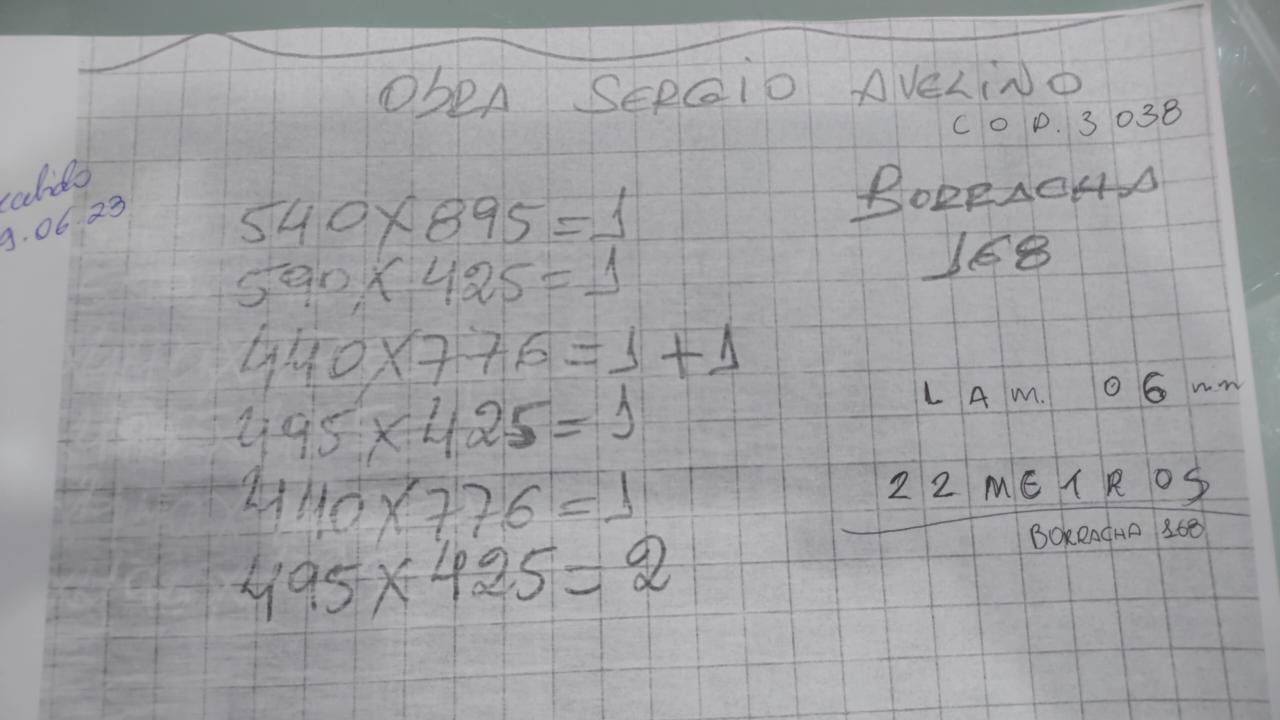 OBRA SERGIO AVELINO
COD. 3038
BORRACHA
168
06.23
540X895=1
590X425=1
440X776=1+1
495X425=1
440X776=1
495X425=2
LAM. 06 mm
22 METROS
BORRACHA 168